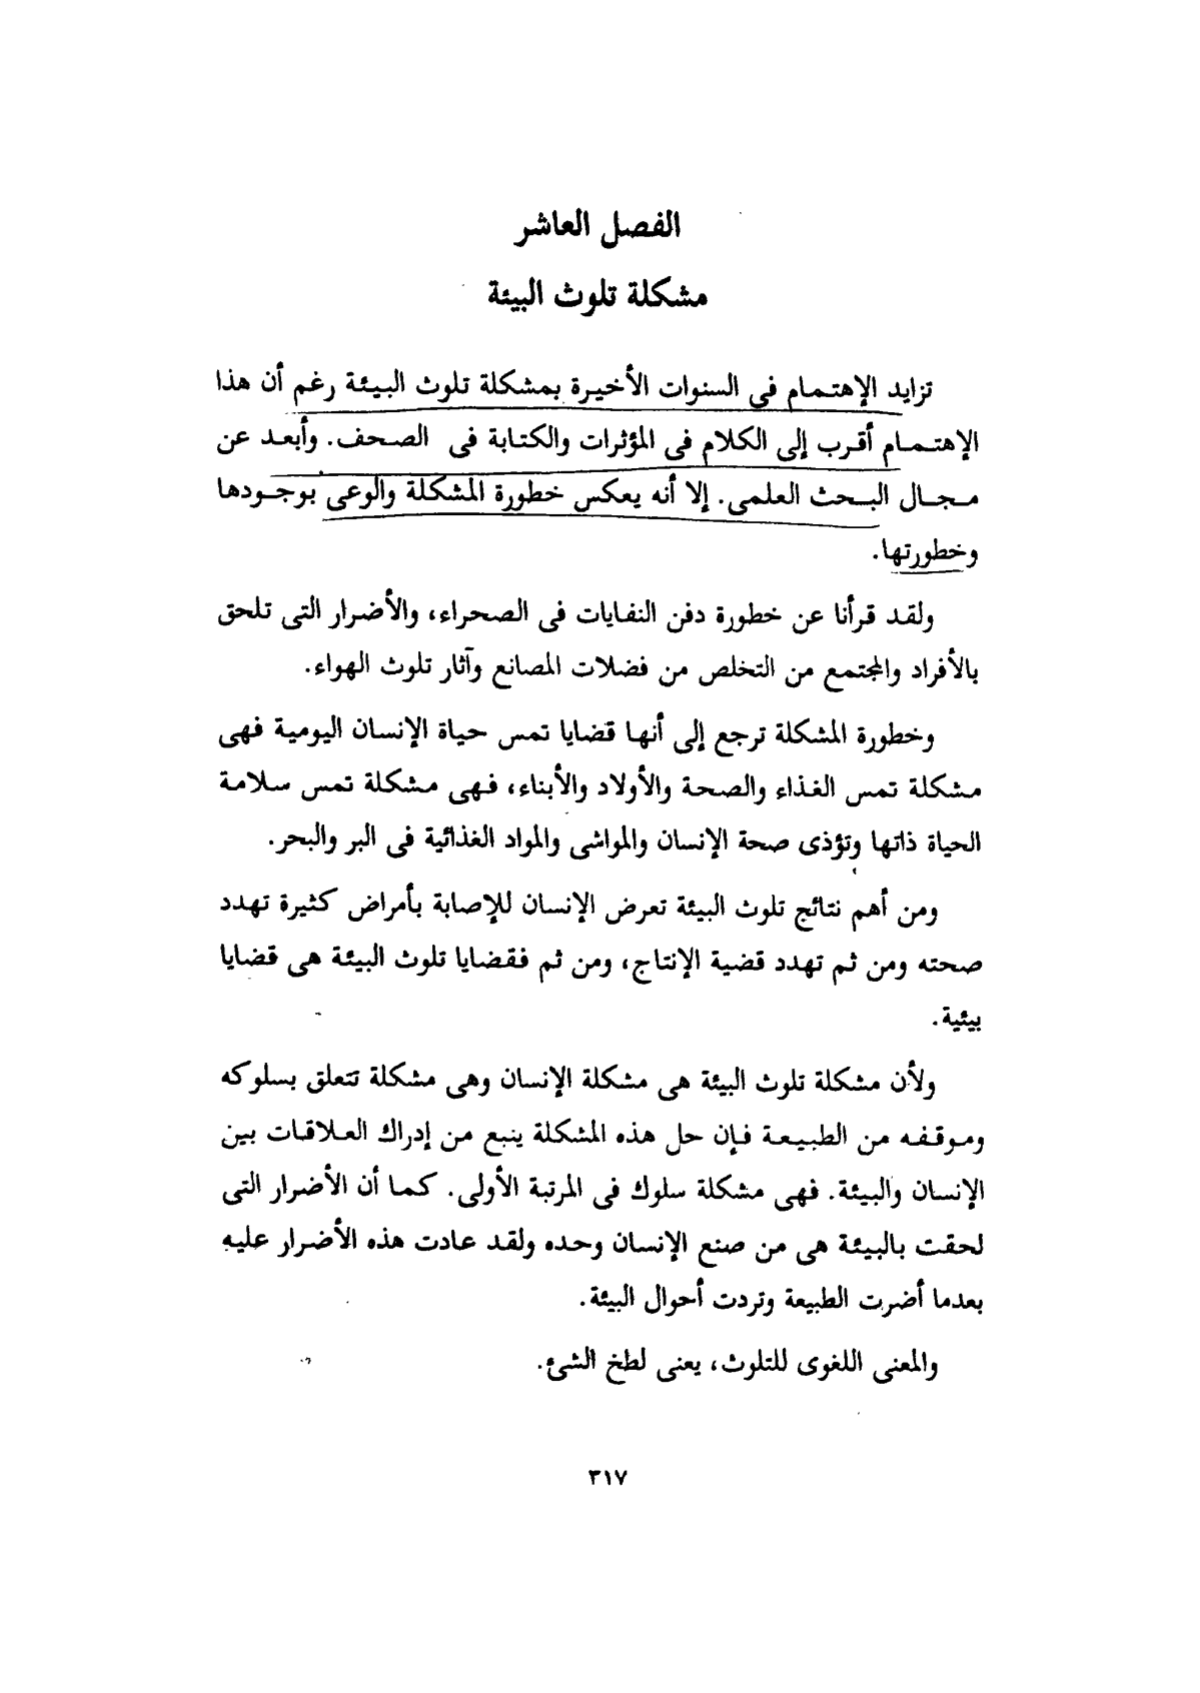 الفصل العاشر
مشكلة تلوث البيئة
تزايد الإهتمام فى السنوات الأخيرة بمشكلة تلوث البيئة رغم أن هذا
الإهتمام أقرب إلى الكلام فى المؤثرات والكتابة فى الصحف. وأبعد عن
مجال البحث العلمى. إلا أنه يعكس خطورة المشكلة والوعى بوجودها
وخطورتها.
ولقد قرأنا عن خطورة دفن النفايات فى الصحراء، والأضرار التى تلحق
بالأفراد والمجتمع من التخلص من فضلات المصانع وآثار تلوث الهواء.
وخطورة المشكلة ترجع إلى أنها قضايا تمس حياة الإنسان اليومية فهى
مشكلة تمس الغذاء والصحة والأولاد والأبناء، فهى مشكلة تمس سلامة
الحياة ذاتها وتؤذى صحة الإنسان والمواشى والمواد الغذائية فى البر والبحر.
ومن أهم نتائج تلوث البيئة تعرض الإنسان للإصابة بأمراض كثيرة تهدد
صحته ومن ثم تهدد قضية الإنتاج، ومن ثم فقضايا تلوث البيئة هى قضايا
بيئية.
ولأن مشكلة تلوث البيئة هى مشكلة الإنسان وهى مشكلة تتعلق بسلوكه
وموقفه من الطبيعة فإن حل هذه المشكلة ينبع من إدراك العلاقات بين
الإنسان والبيئة. فهى مشكلة سلوك فى المرتبة الأولى. كما أن الأضرار التى
لحقت بالبيئة هى من صنع الإنسان وحده ولقد عادت هذه الأضرار عليه
بعدما أضرت الطبيعة وتردت أحوال البيئة.
والمعنى اللغوى للتلوث، يعنى لطخ الشئ.
٣١٧